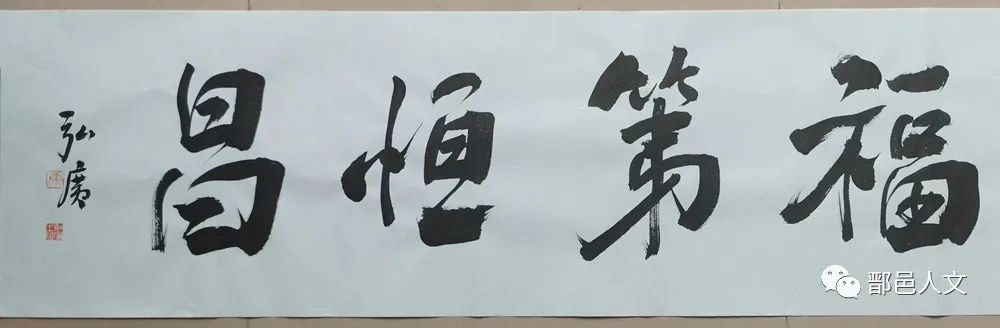 福第恒昌
弘廣
鄑邑人文